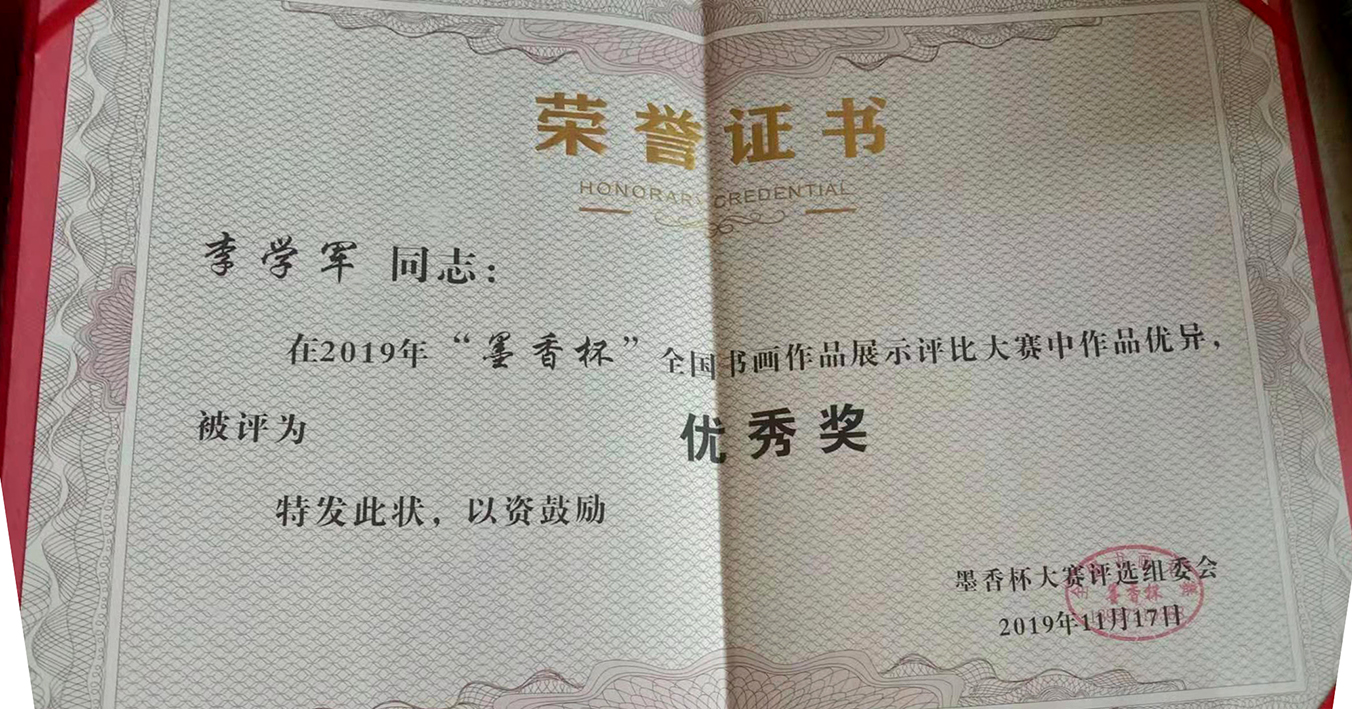 荣誉证书
HONORARY CREDENTIAL
李学军 同志：
在2019年“墨香杯”全国书画作品展示评比大赛中作品优异，
被评为 优秀奖
特发此状，以资鼓励
墨香杯大赛评选组委会
2019年11月17日
墨香杯